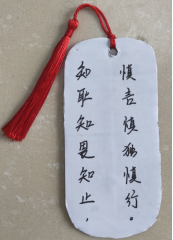 知耻知畏知止，
慎言慎独慎行。